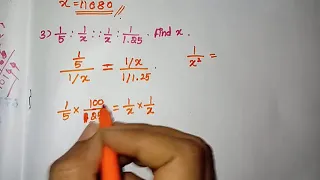 x = 11080
3) 1/5 : 1/x :: 1/x : 1/1.25. Find x.
(1/5)/(1/x) = (1/x)/(1/1.25)
1/x² =
1/5 × 100/125 = 1/x × 1/x